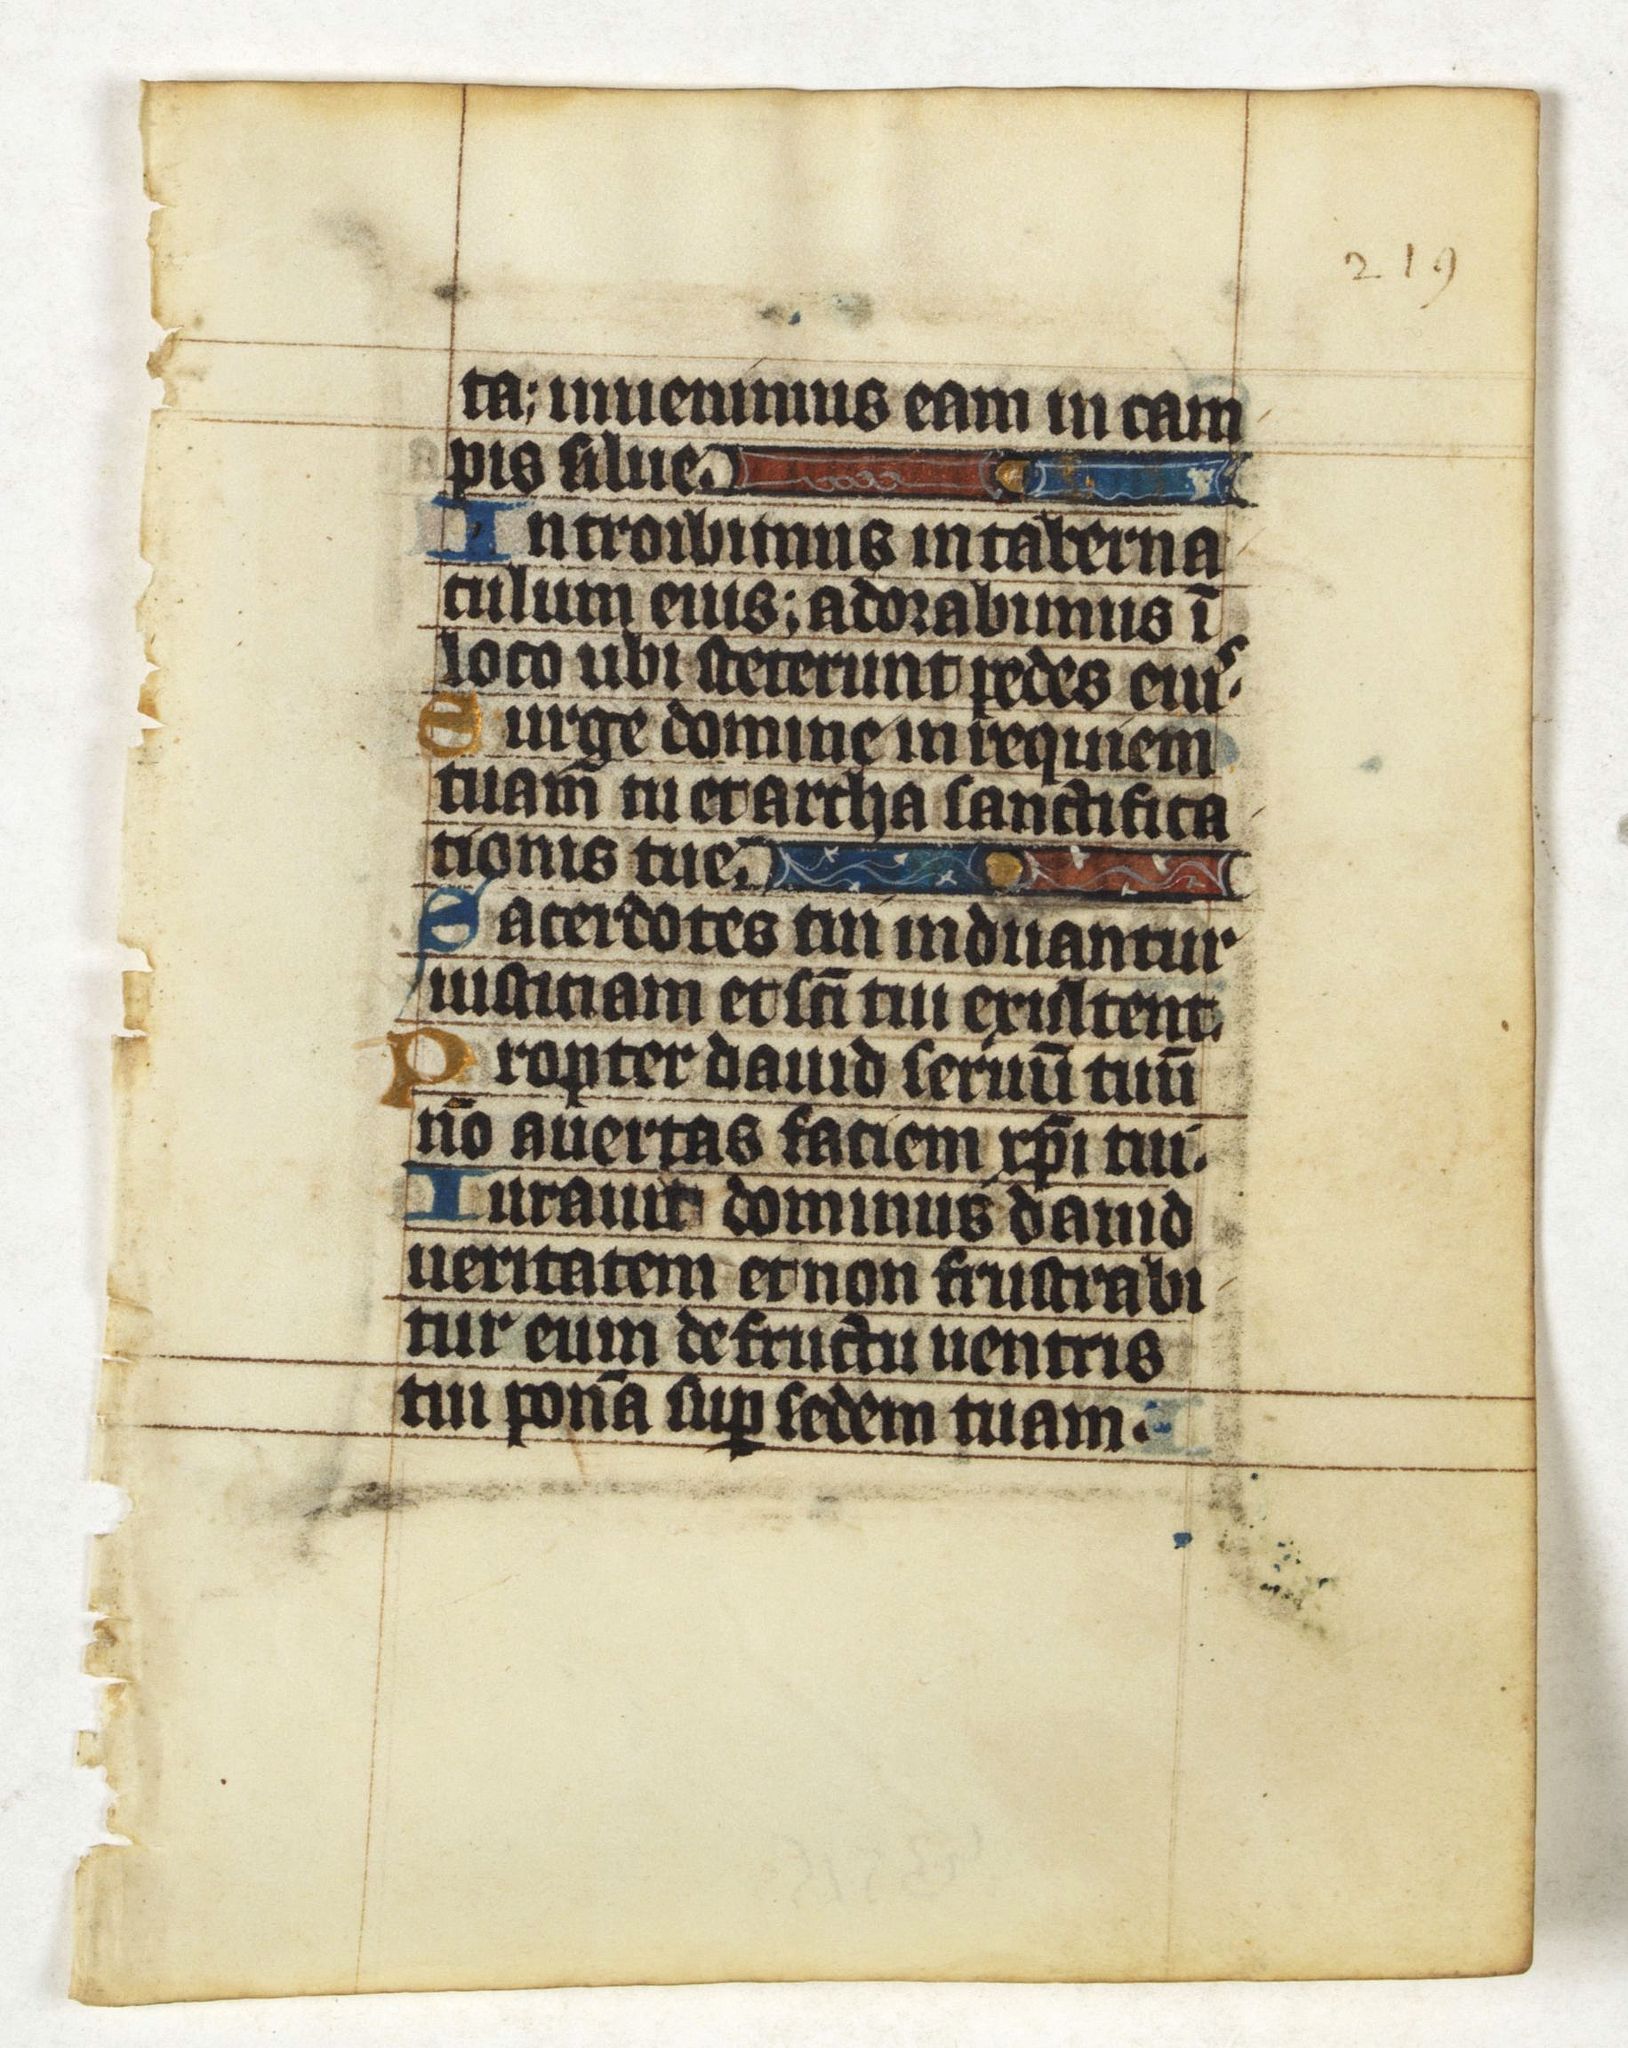 219
ta; inuenimus eam in cam
pis silue.
Introibimus in taberna
culum eius; adorabimus ī
loco ubi steterunt pedes eius.
Surge domine in requiem
tuam̄ tu et archa sanctifica
tionis tue.
Sacerdotes tui induantur
iusticiam et sc̄i tui exultent.
Propter dauid seruū tuū
nō auertas faciem xp̄i tui.
Iurauit dominus dauid
ueritatem et non frustrabi
tur eum de fructu uentris
tui ponā suꝑ sedem tuam.